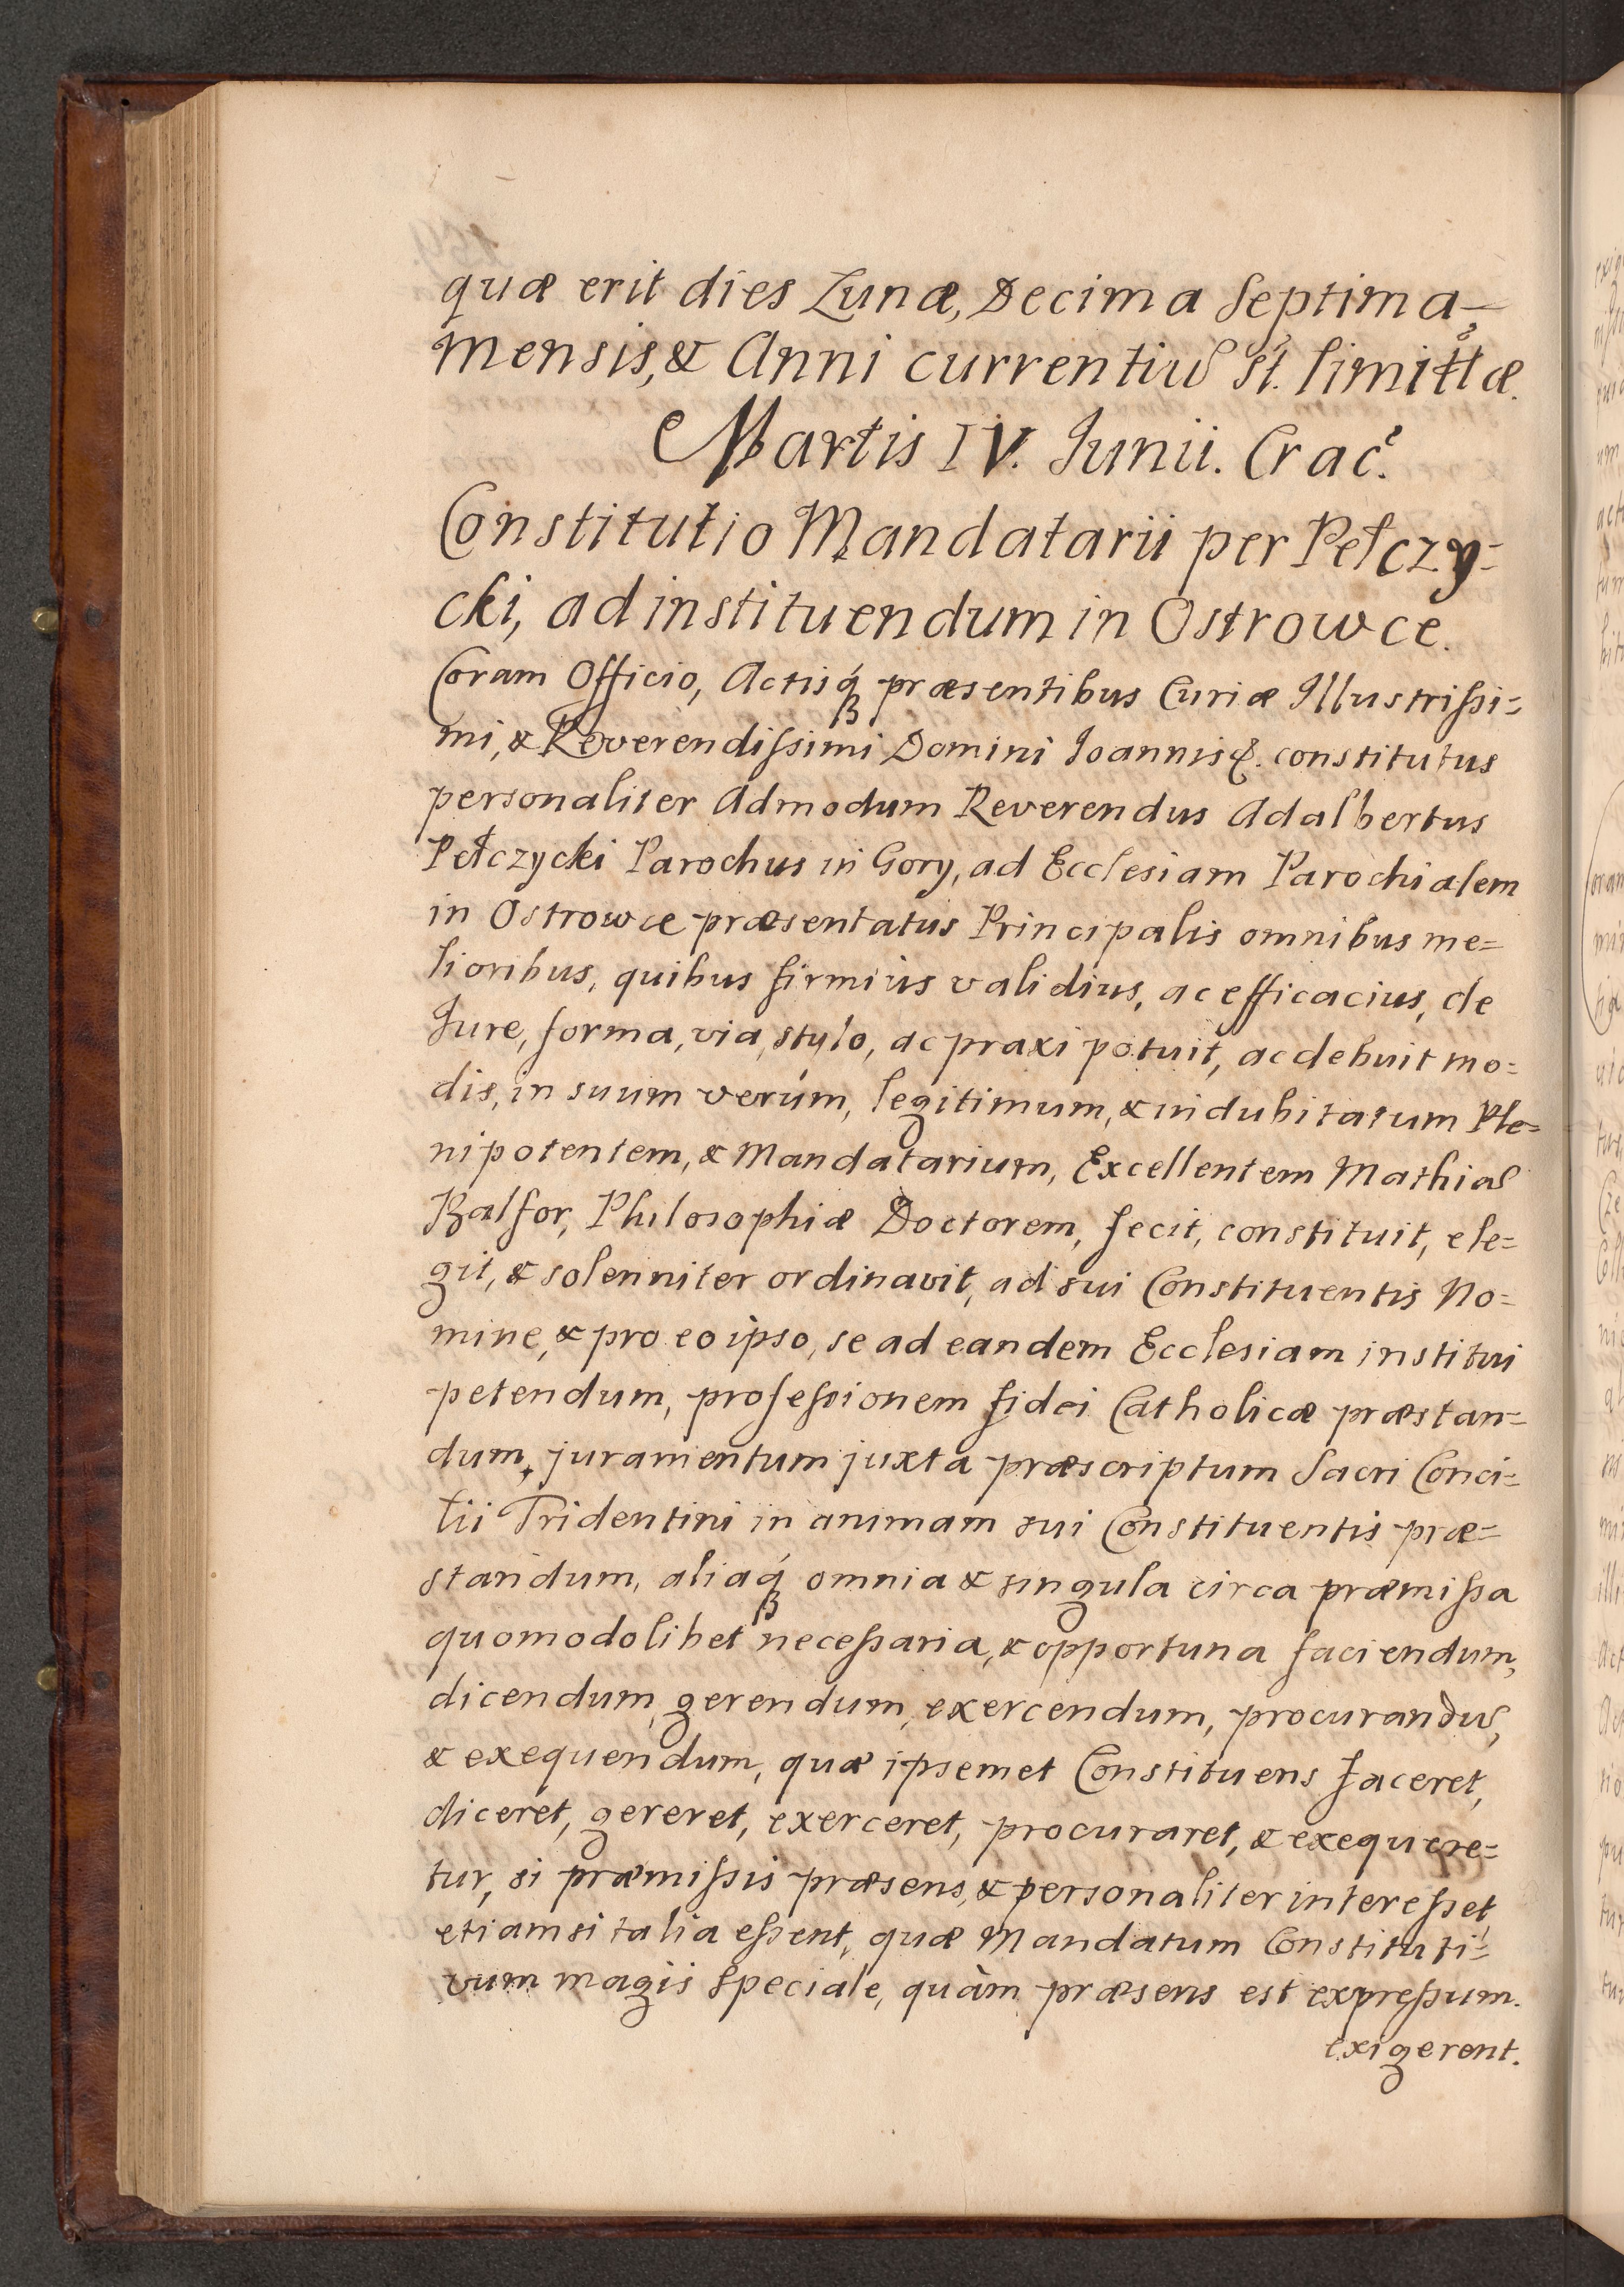 quæ erit dies Lunæ, Decima Septima
mensis, & Anni currentiu st. limittæ.
Martis IV. Junii. Crac.
Constitutio Mandatarii per Pełczy=
cki, ad instituendum in Ostrowce.
Coram Officio, Actisq præsentibus Curiæ Illustrissi=
mi, & Reverendissimi Domini Joannis &. constitutus
personaliter Admodum Reverendus Adalbertus
Pełczycki Parochus in Gory, ad Ecclesiam Parochialem
in Ostrowce præsentatus Principalis omnibus me=
lioribus, quibus firmius validius, ac efficacius, de
Jure, forma, via, stylo, ac praxi potuit, ac debuit mo=
dis, in suum verum, legitimum, & indubitatum Ple=
nipotentem, & Mandatarium, Excellentem Mathia
Balfor, Philosophiæ Doctorem, fecit, constituit, ele=
git, & solenniter ordinavit, ad sui Constituentis No=
mine, & pro eo ipso, se ad eandem Ecclesiam institui
petendum, professionem fidei Catholicæ præstan=
dum, juramentum juxta præscriptum Sacri Conci=
lii Tridentini in animam sui Constituentis præ=
standum, aliaq omnia & singula circa præmissa
quomodolibet necessaria, & opportuna faciendum,
dicendum, gerendum, exercendum, procurandu,
& exequendum, quæ ipsemet Constituens faceret,
diceret, gereret, exerceret, procuraret, & exequere=
tur, si præmissis præsens, & personaliter interesset,
etiamsi talia essent, quæ Mandatum Constituti=
vum magis speciale, quàm præsens est expressum.
exigerent.